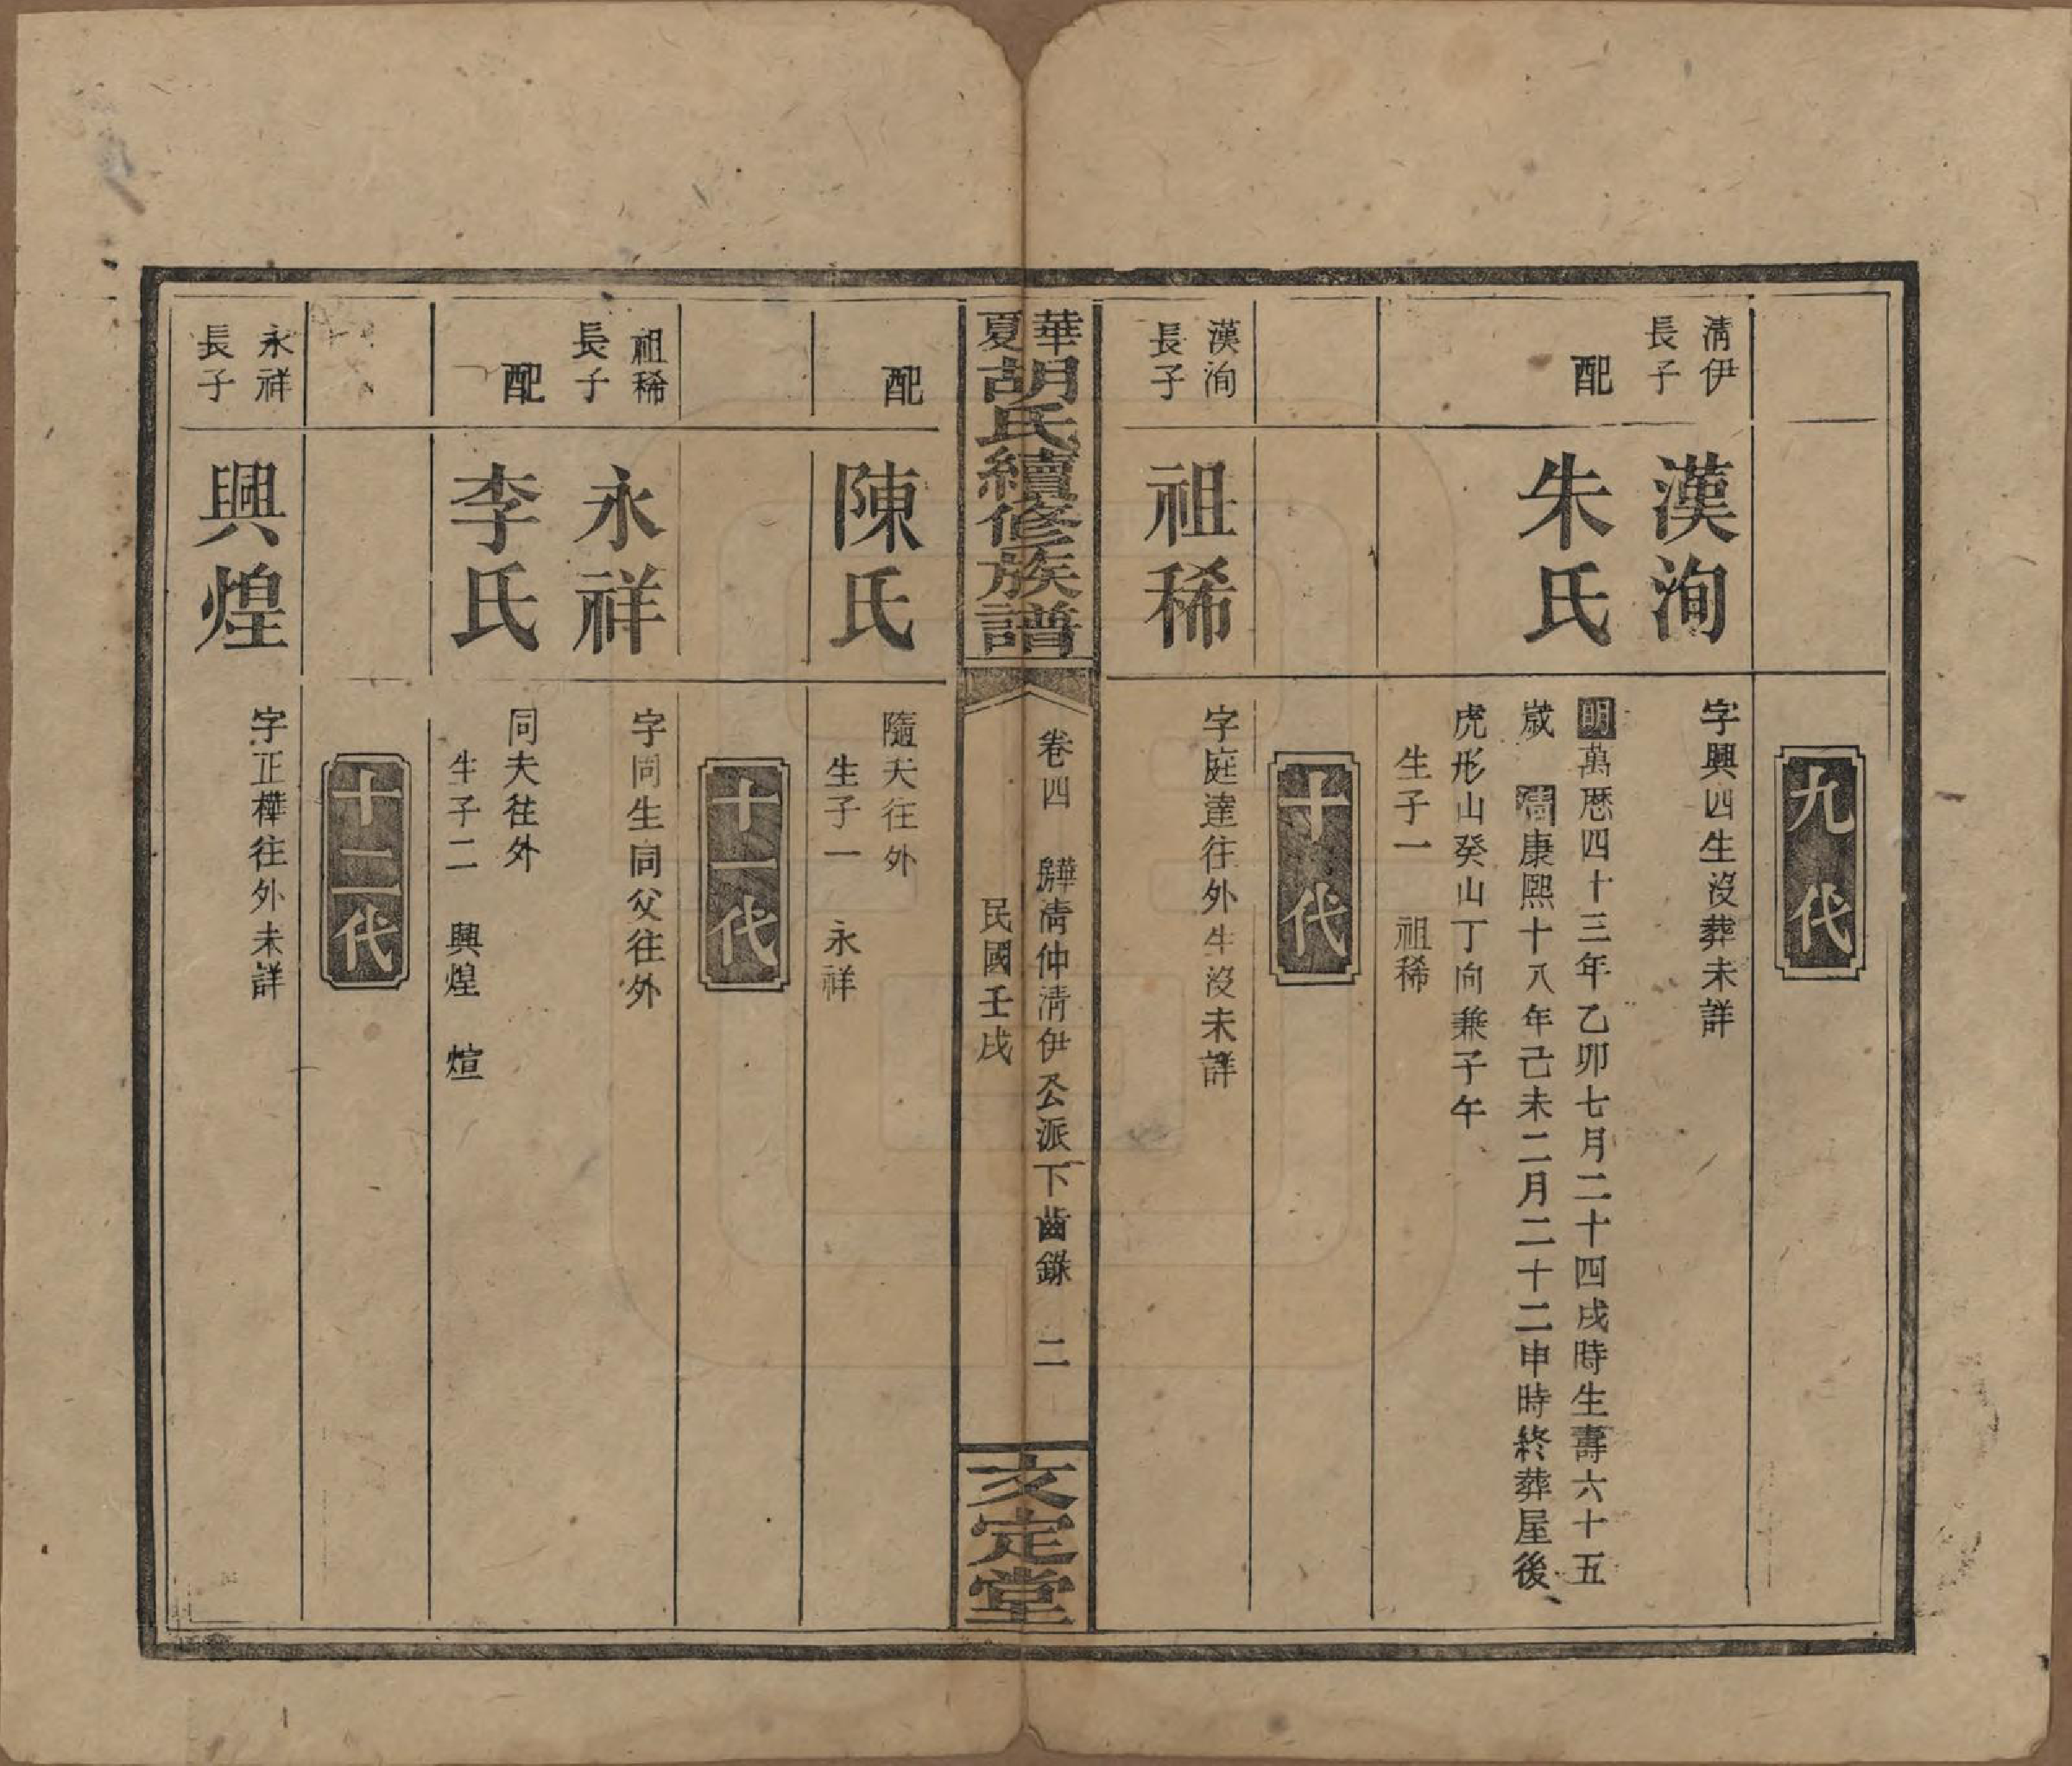 九代
清伊長子
漢洵
字興四生沒葬未詳
配
朱氏
明萬厯四十三年乙卯七月二十四戌時生壽六十五
歲 清康熙十八年己未二月二十二申時終葬屋後
虎形山癸山丁向兼子午
生子一 祖稀
十代
漢洵長子
祖稀
字庭達往外生沒未詳
華夏胡氏續修族譜
卷四 清仲清伊公派下齒錄 二
民國壬戌
文定堂
配
陳氏
隨夫往外
生子一 永祥
十一代
祖稀長子
永祥
字同生同父往外
配
李氏
同夫往外
生子二 興煌 煊
十二代
永祥長子
興煌
字正樺往外未詳